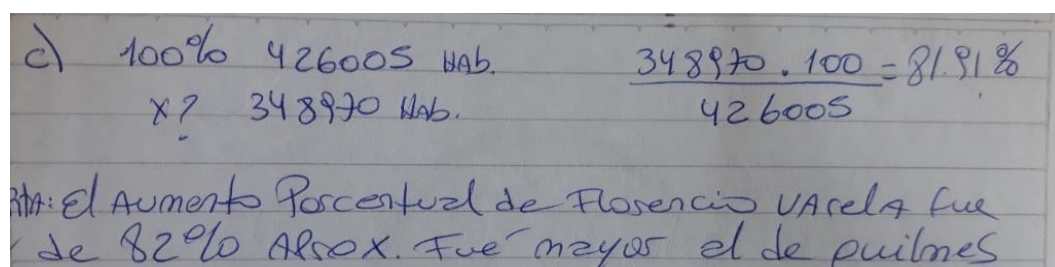 c) 100% 426005 HAb. 348970 . 100 = 81.91%
x? 348970 HAb. 426005
RtA: El Aumento Porcentual de Florencio VArelA fue
de 82% AProx. Fué mayor el de quilmes